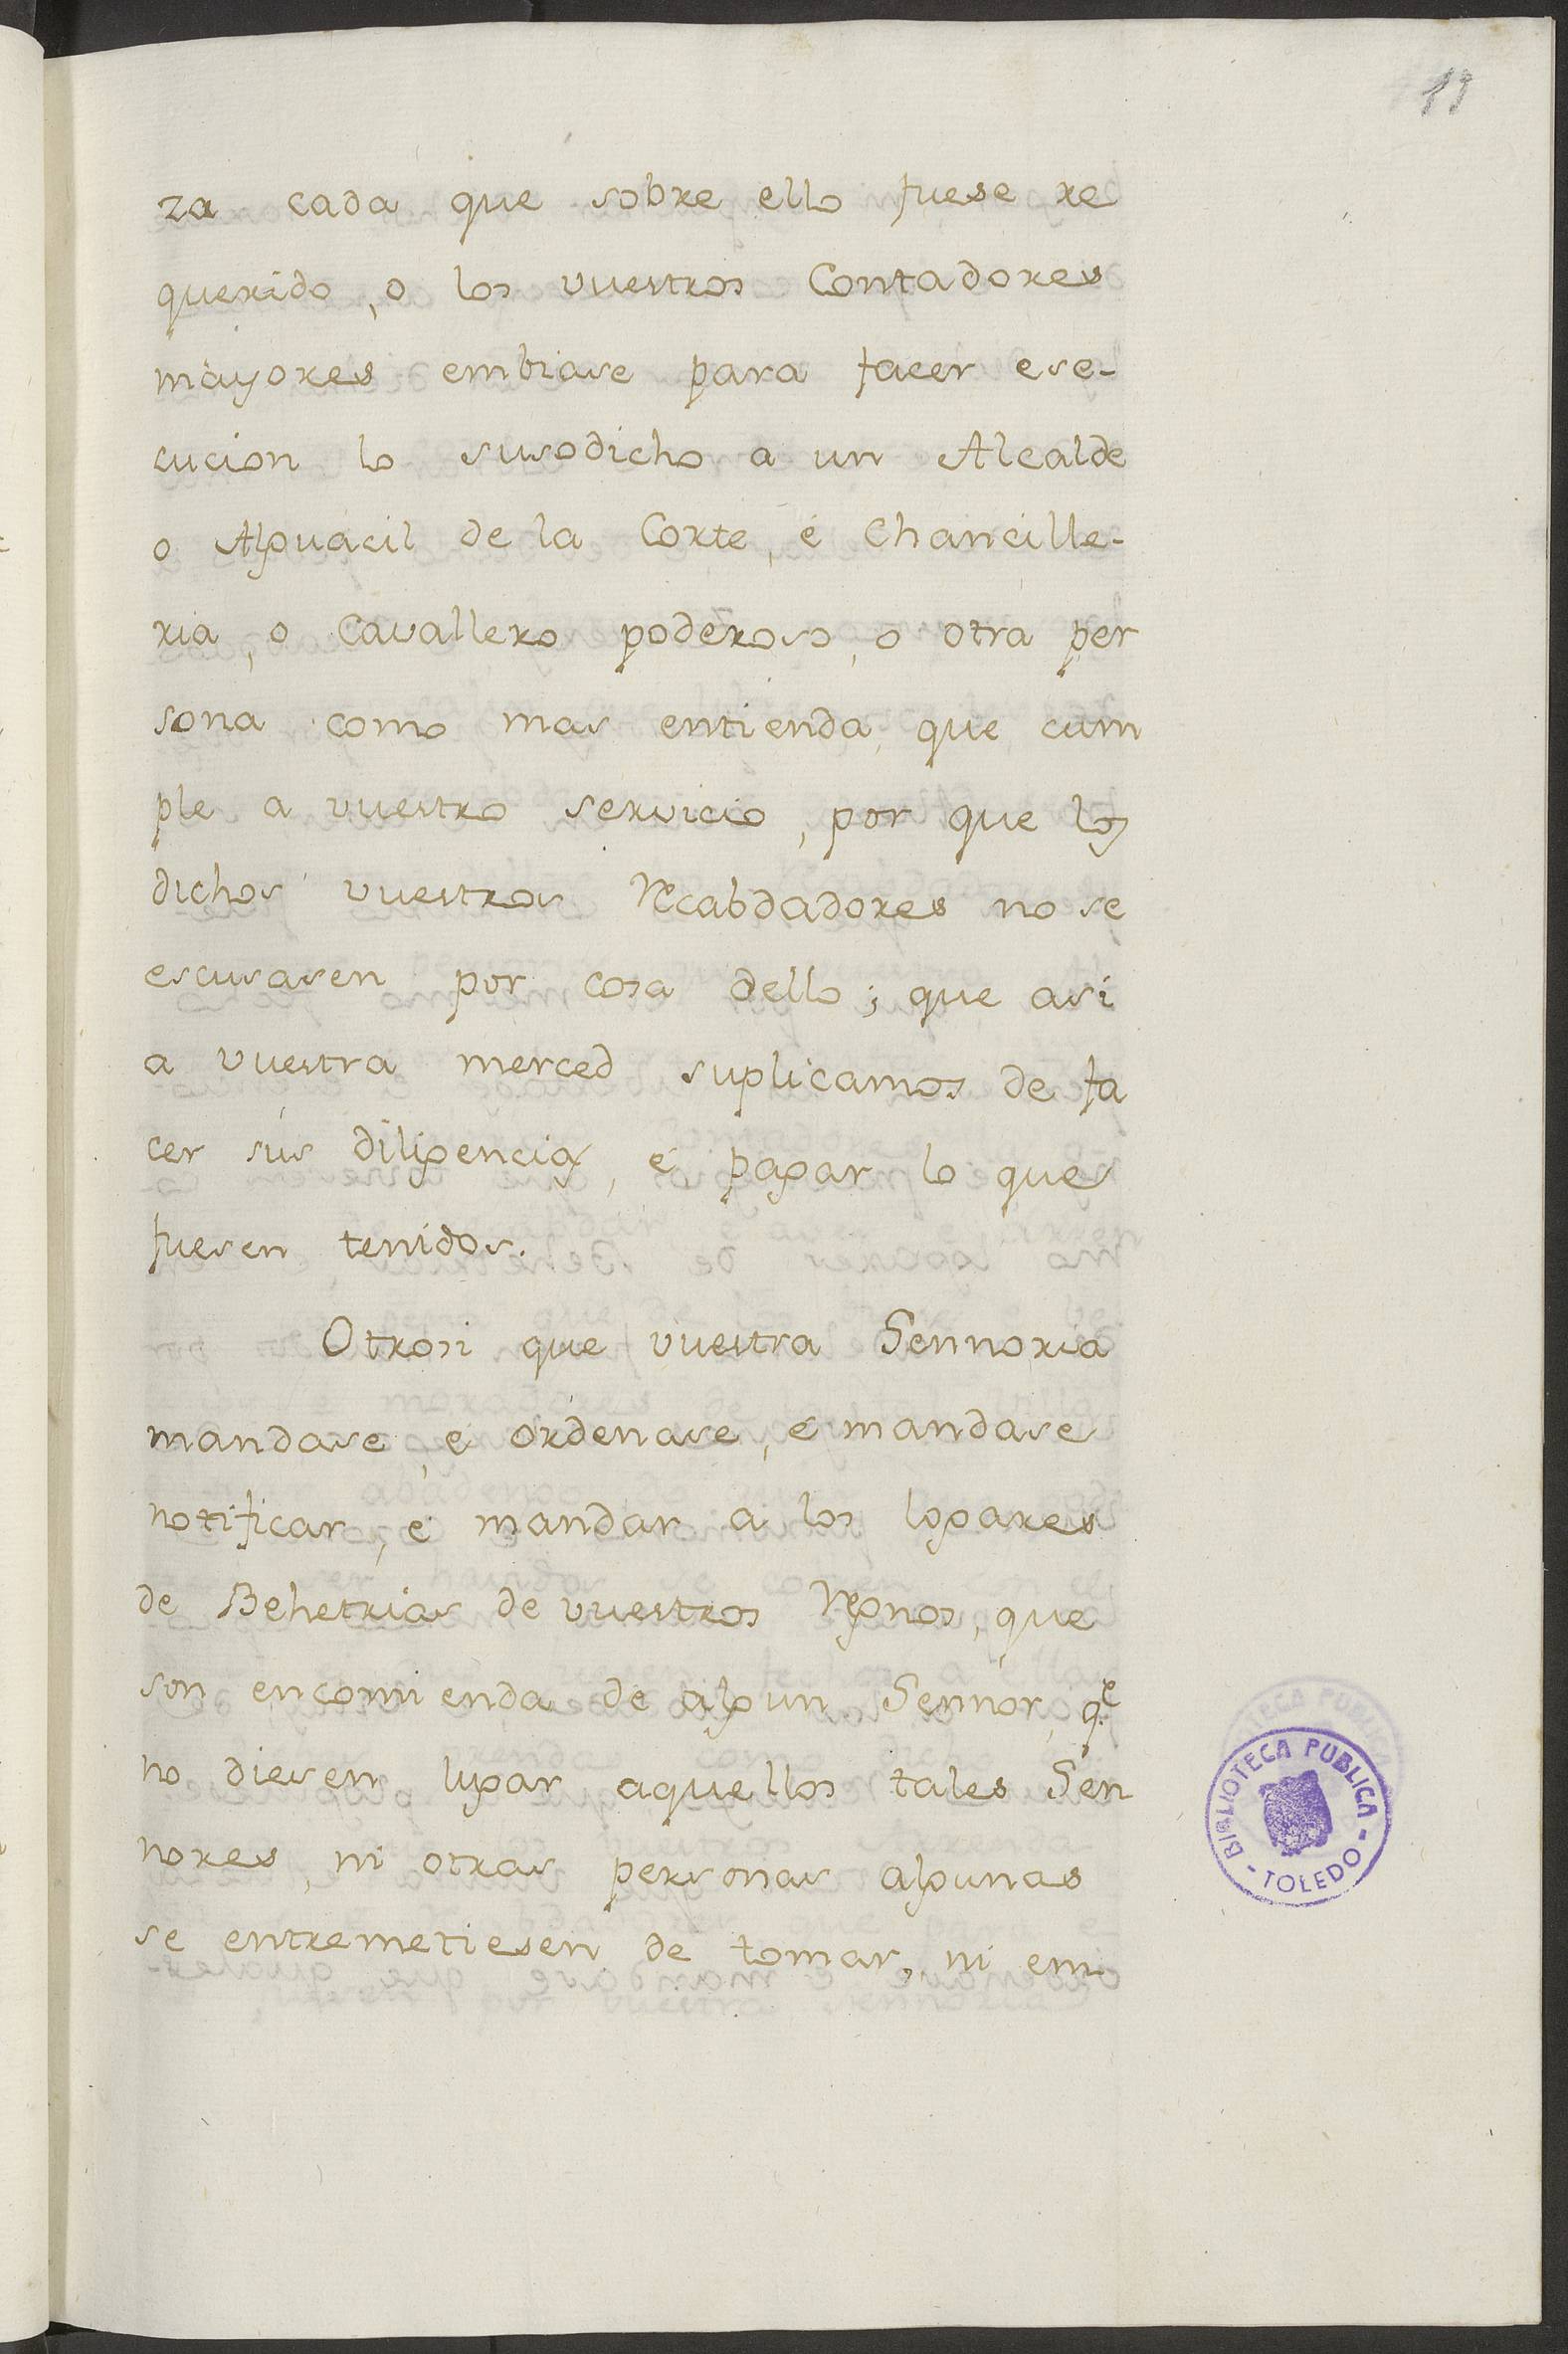 19
za cada que sobre ello fuese re
querido, o los vuestros Contadores
mayores embiase para facer ese-
cucion lo susodicho a un Alcalde
o Alguacil de la Corte, é Chancille-
ria, o Cavallero poderoso, o otra per
sona como mas entienda que cum
ple a vuestro servicio, por que los
dichos vuestros Recabdadores no se
escusasen por cosa dello; que asi
a vuestra merced suplicamos de fa
cer sus diligencias, é pagar lo que
fuesen tenidos.
Otrosi que vuestra Sennoria
mandase, é ordenase, é mandase
notificar, é mandar a los logares
de Behetrias de vuestros Regnos, que
son encomienda de algun Sennor, q.e
no diesen lugar aquellos tales Sen
nores, ni otras personas algunas
se entremetiesen de tomar, ni em
BIBLIOTECA PUBLICA
- TOLEDO -